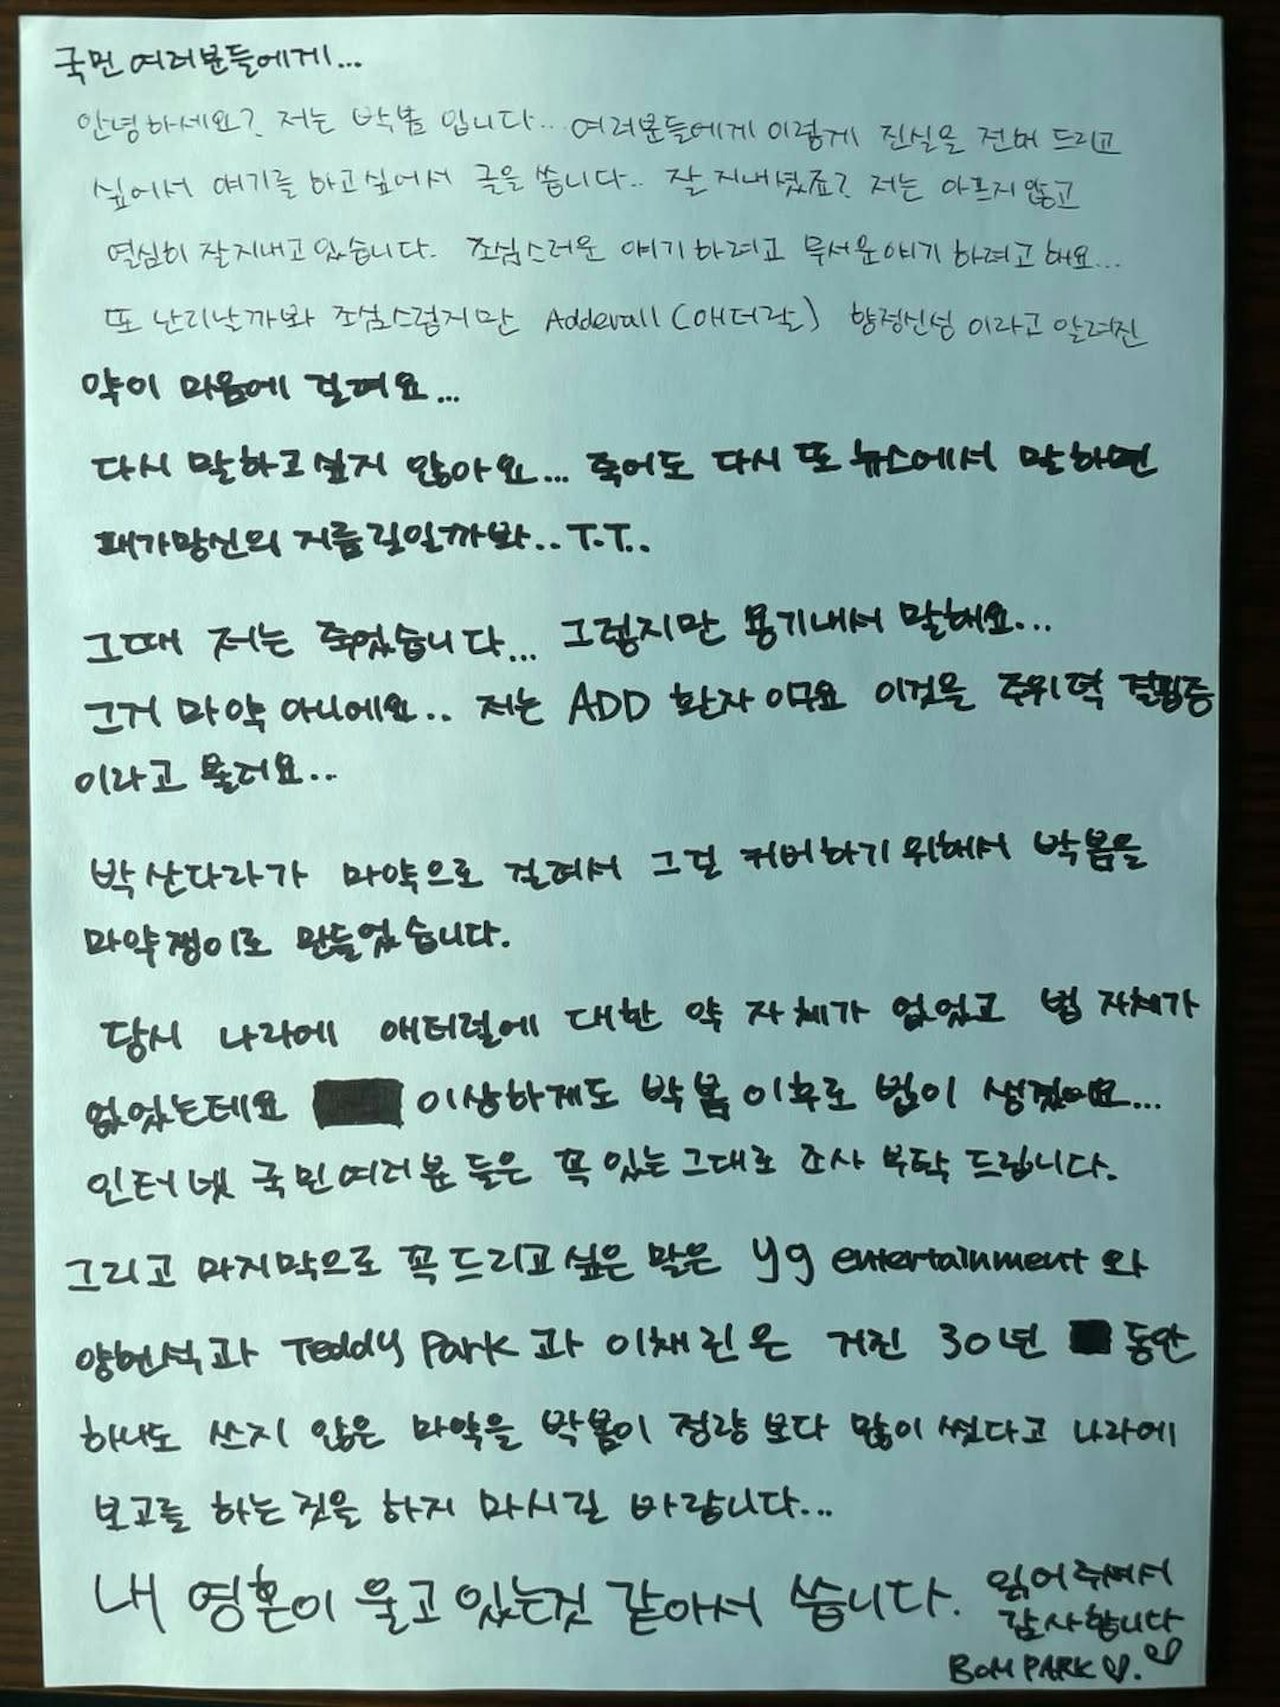 국민 여러분들에게...
안녕하세요? 저는 박봄 입니다... 여러분들에게 이렇게 진실을 전해 드리고
싶어서 얘기를 하고싶어서 글을 씁니다.. 잘 지내셨죠? 저는 아프지않고
열심히 잘지내고 있습니다. 조심스러운 얘기하려고 무서운얘기 하려고 해요...
또 난리날까봐 조심스럽지만 Adderall (애더랄) 향정신성 이라고 알려진
약이 마음에 걸려요...
다시 말하고싶지 않아요... 죽어도 다시 또 뉴스에서 말하면
패가망신의 지름길일까봐.. T.T..
그때 저는 죽었습니다... 그렇지만 용기내서 말해요...
그거 마약 아니에요.. 저는 ADD 환자 이구요 이것을 주위력 결핍증
이라고 불러요..
박산다라가 마약으로 걸려서 그걸 커버하기 위해서 박봄을
마약쟁이로 만들었습니다.
당시 나라에 애터럴에 대한 약 자체가 없었고 법 자체가
없었는데요 이상하게도 박봄 이후로 법이 생겼어요...
인터넷 국민여러분 들은 꼭 있는그대로 조사 부탁 드립니다.
그리고 마지막으로 꼭 드리고싶은 말은 yg entertainment 와
양현석과 Teddy Park 과 이채린은 거진 30년 동안
하나도 쓰지 않은 마약을 박봄이 정량보다 많이 썼다고 나라에
보고를 하는 것을 하지 마시길 바랍니다...
내 영혼이 울고 있는것 같아서 씁니다.
읽어주셔서
감사합니다
BOM PARK♡.♡